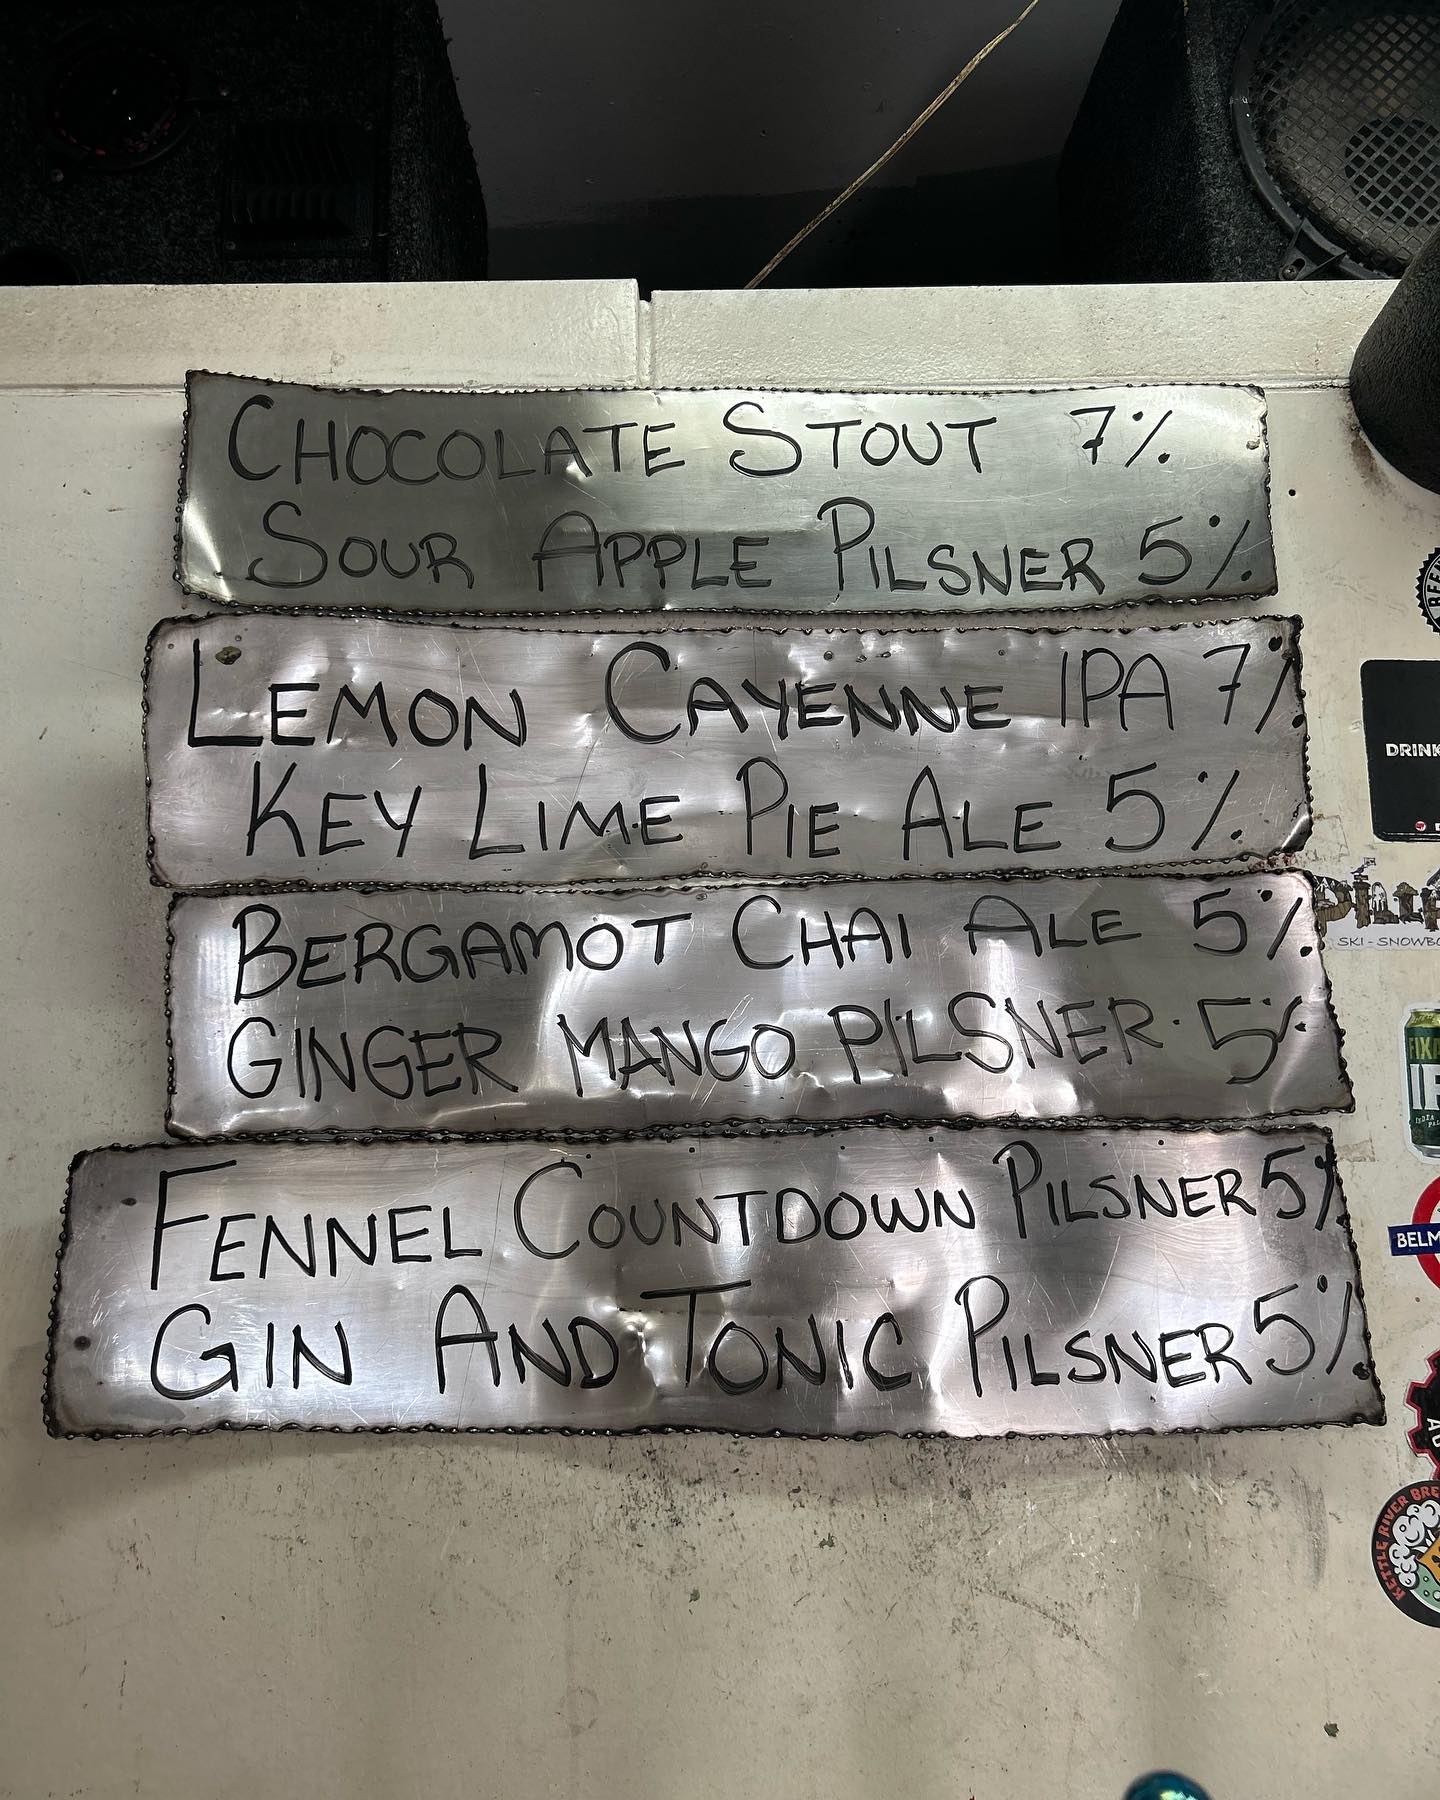 CHOCOLATE STOUT 7%
SOUR APPLE PILSNER 5%
LEMON CAYENNE IPA 7%
KEY LIME PIE ALE 5%
BERGAMOT CHAI ALE 5%
GINGER MANGO PILSNER 5%
FENNEL COUNTDOWN PILSNER 5%
GIN AND TONIC PILSNER 5%
DRINK
SKI - SNOWBO
FIXA
IP
BELM
KETTLE RIVER BRE